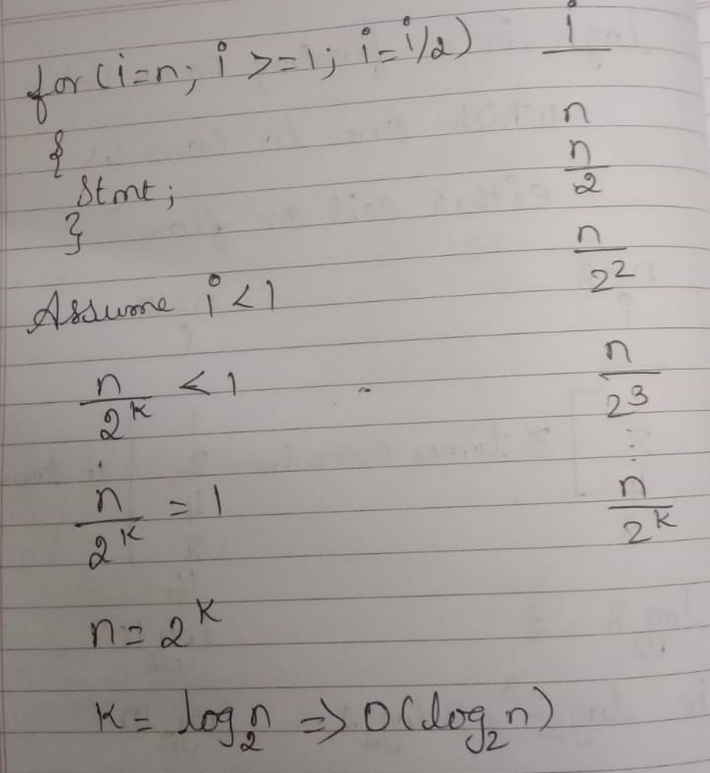 for(i=n; i>=1; i=i/2)
{
Stmt;
}
Assume i<1
n/2^k < 1
n/2^k = 1
n=2^k
k= log₂n => O(log₂n)
i
n
n/2
n/2²
n/2³
⋮
n/2^k